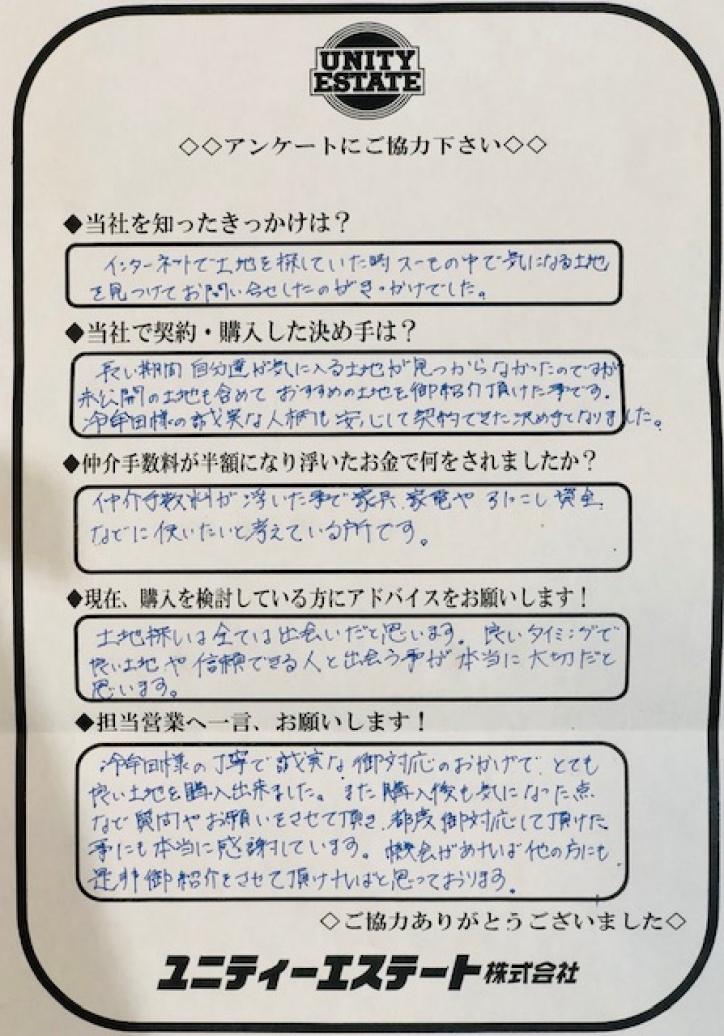 UNITY
ESTATE
◇◇アンケートにご協力下さい◇◇
◆当社を知ったきっかけは？
インターネットで土地を探していた時スーモの中で気になる土地
を見つけてお問い合せしたのがきっかけでした。
◆当社で契約・購入した決め手は？
長い期間 自分達が気に入る土地が見つからなかったのですが
未公開の土地も含めて おすすめの土地を御紹介頂けた事です。
冷牟田様の誠実な人柄も安心して契約できた決め手となりました。
◆仲介手数料が半額になり浮いたお金で何をされましたか？
仲介手数料が浮いた事で家具、家電や引こし資金
などに使いたいと考えている所です。
◆現在、購入を検討している方にアドバイスをお願いします！
土地探しは全ては出会いだと思います。良いタイミングで
良い土地や信頼できる人と出会う事が本当に大切だと
思います。
◆担当営業へ一言、お願いします！
冷牟田様の丁寧で誠実な御対応のおかげで、とても
良い土地を購入出来ました。また購入後も気になった点
など質問やお願いをさせて頂き、都度御対応して頂けた
事にも本当に感謝しています。機会があれば他の方にも
是非御紹介をさせて頂ければと思っております。
◇ご協力ありがとうございました◇
ユニティーエステート株式会社